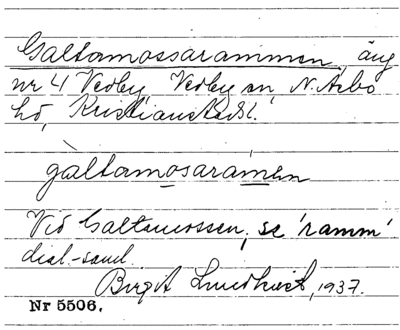 Galtamossarammen, äng
nr 4 Vedby Vedby sn, N. Åsbo
hd, Kristianstads l.
galtamosaramen
Vid Galtamossen, se 'ramm'
dial.-saml.
Birgit Lundkvist, 1937.
Nr 5506.